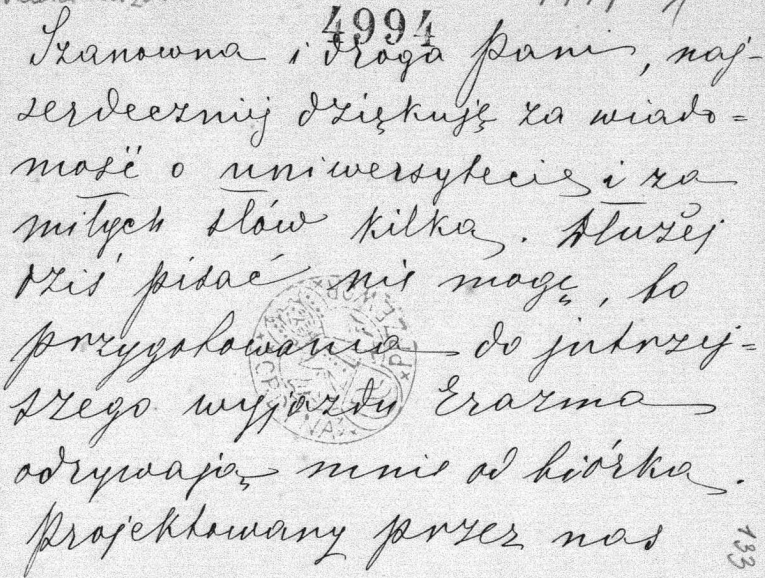 4994
Szanowna i droga Pani, naj-
serdeczniej dziękuję za wiado=
mość o uniwersytecie i za
miłych słów kilka. Dłużej
dziś pisać nie mogę, bo
przygotowania do jutrzej=
szego wyjazdu Erazma
odrywają mnie od biórka.
Projektowany przez nas
133